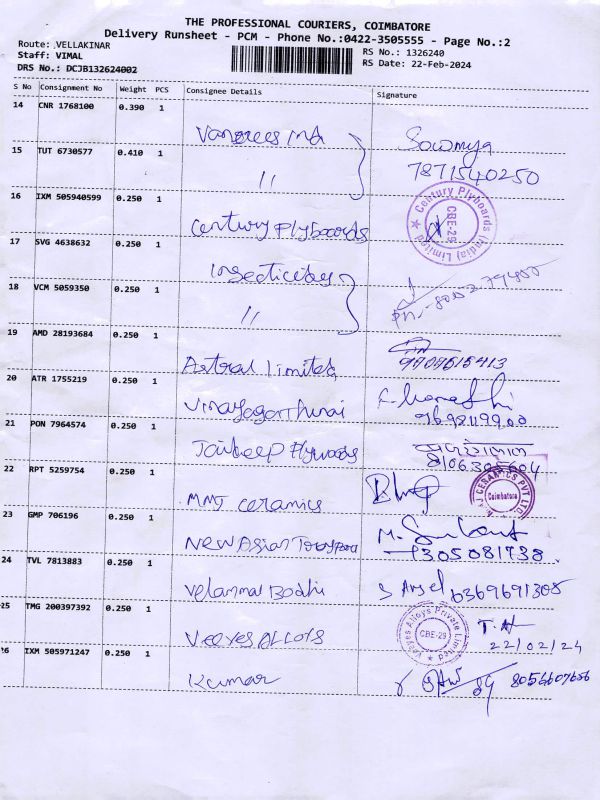 THE PROFESSIONAL COURIERS, COIMBATORE
Delivery Runsheet - PCM - Phone No.:0422-3505555 - Page No.:2
Route: ,VELLAKINAR
RS No.: 1326240
Staff: VIMAL
RS Date: 22-Feb-2024
DRS No.: DCJB132624002
S No Consignment No Weight PCS Consignee Details Signature
14 CNR 1768100 0.390 1
Sowmya
7871540250
15 TUT 6730577 0.410 1 〃
16 IXM 505940599 0.250 1 Century Plyboards
Century Plyboards (India) Limited ★ CBE-29
17 SVG 4638632 0.250 1
18 VCM 5059350 0.250 1 〃
19 AMD 28193684 0.250 1 Astral Limited
9909615413
20 ATR 1755219 0.250 1
21 PON 7964574 0.250 1 Jaideep Plywoods
22 RPT 5259754 0.250 1 MMJ Ceramics
CERAMICS PVT LTD Coimbatore
23 GMP 706196 0.250 1 New Asian
24 TVL 7813883 0.250 1 Velammal Bodhi
25 TMG 200397392 0.250 1 Veeyes Alloys
Veeyes Alloys Private Limited ★ CBE-29
22/02/24
26 IXM 505971247 0.250 1 Kumar
8056607656